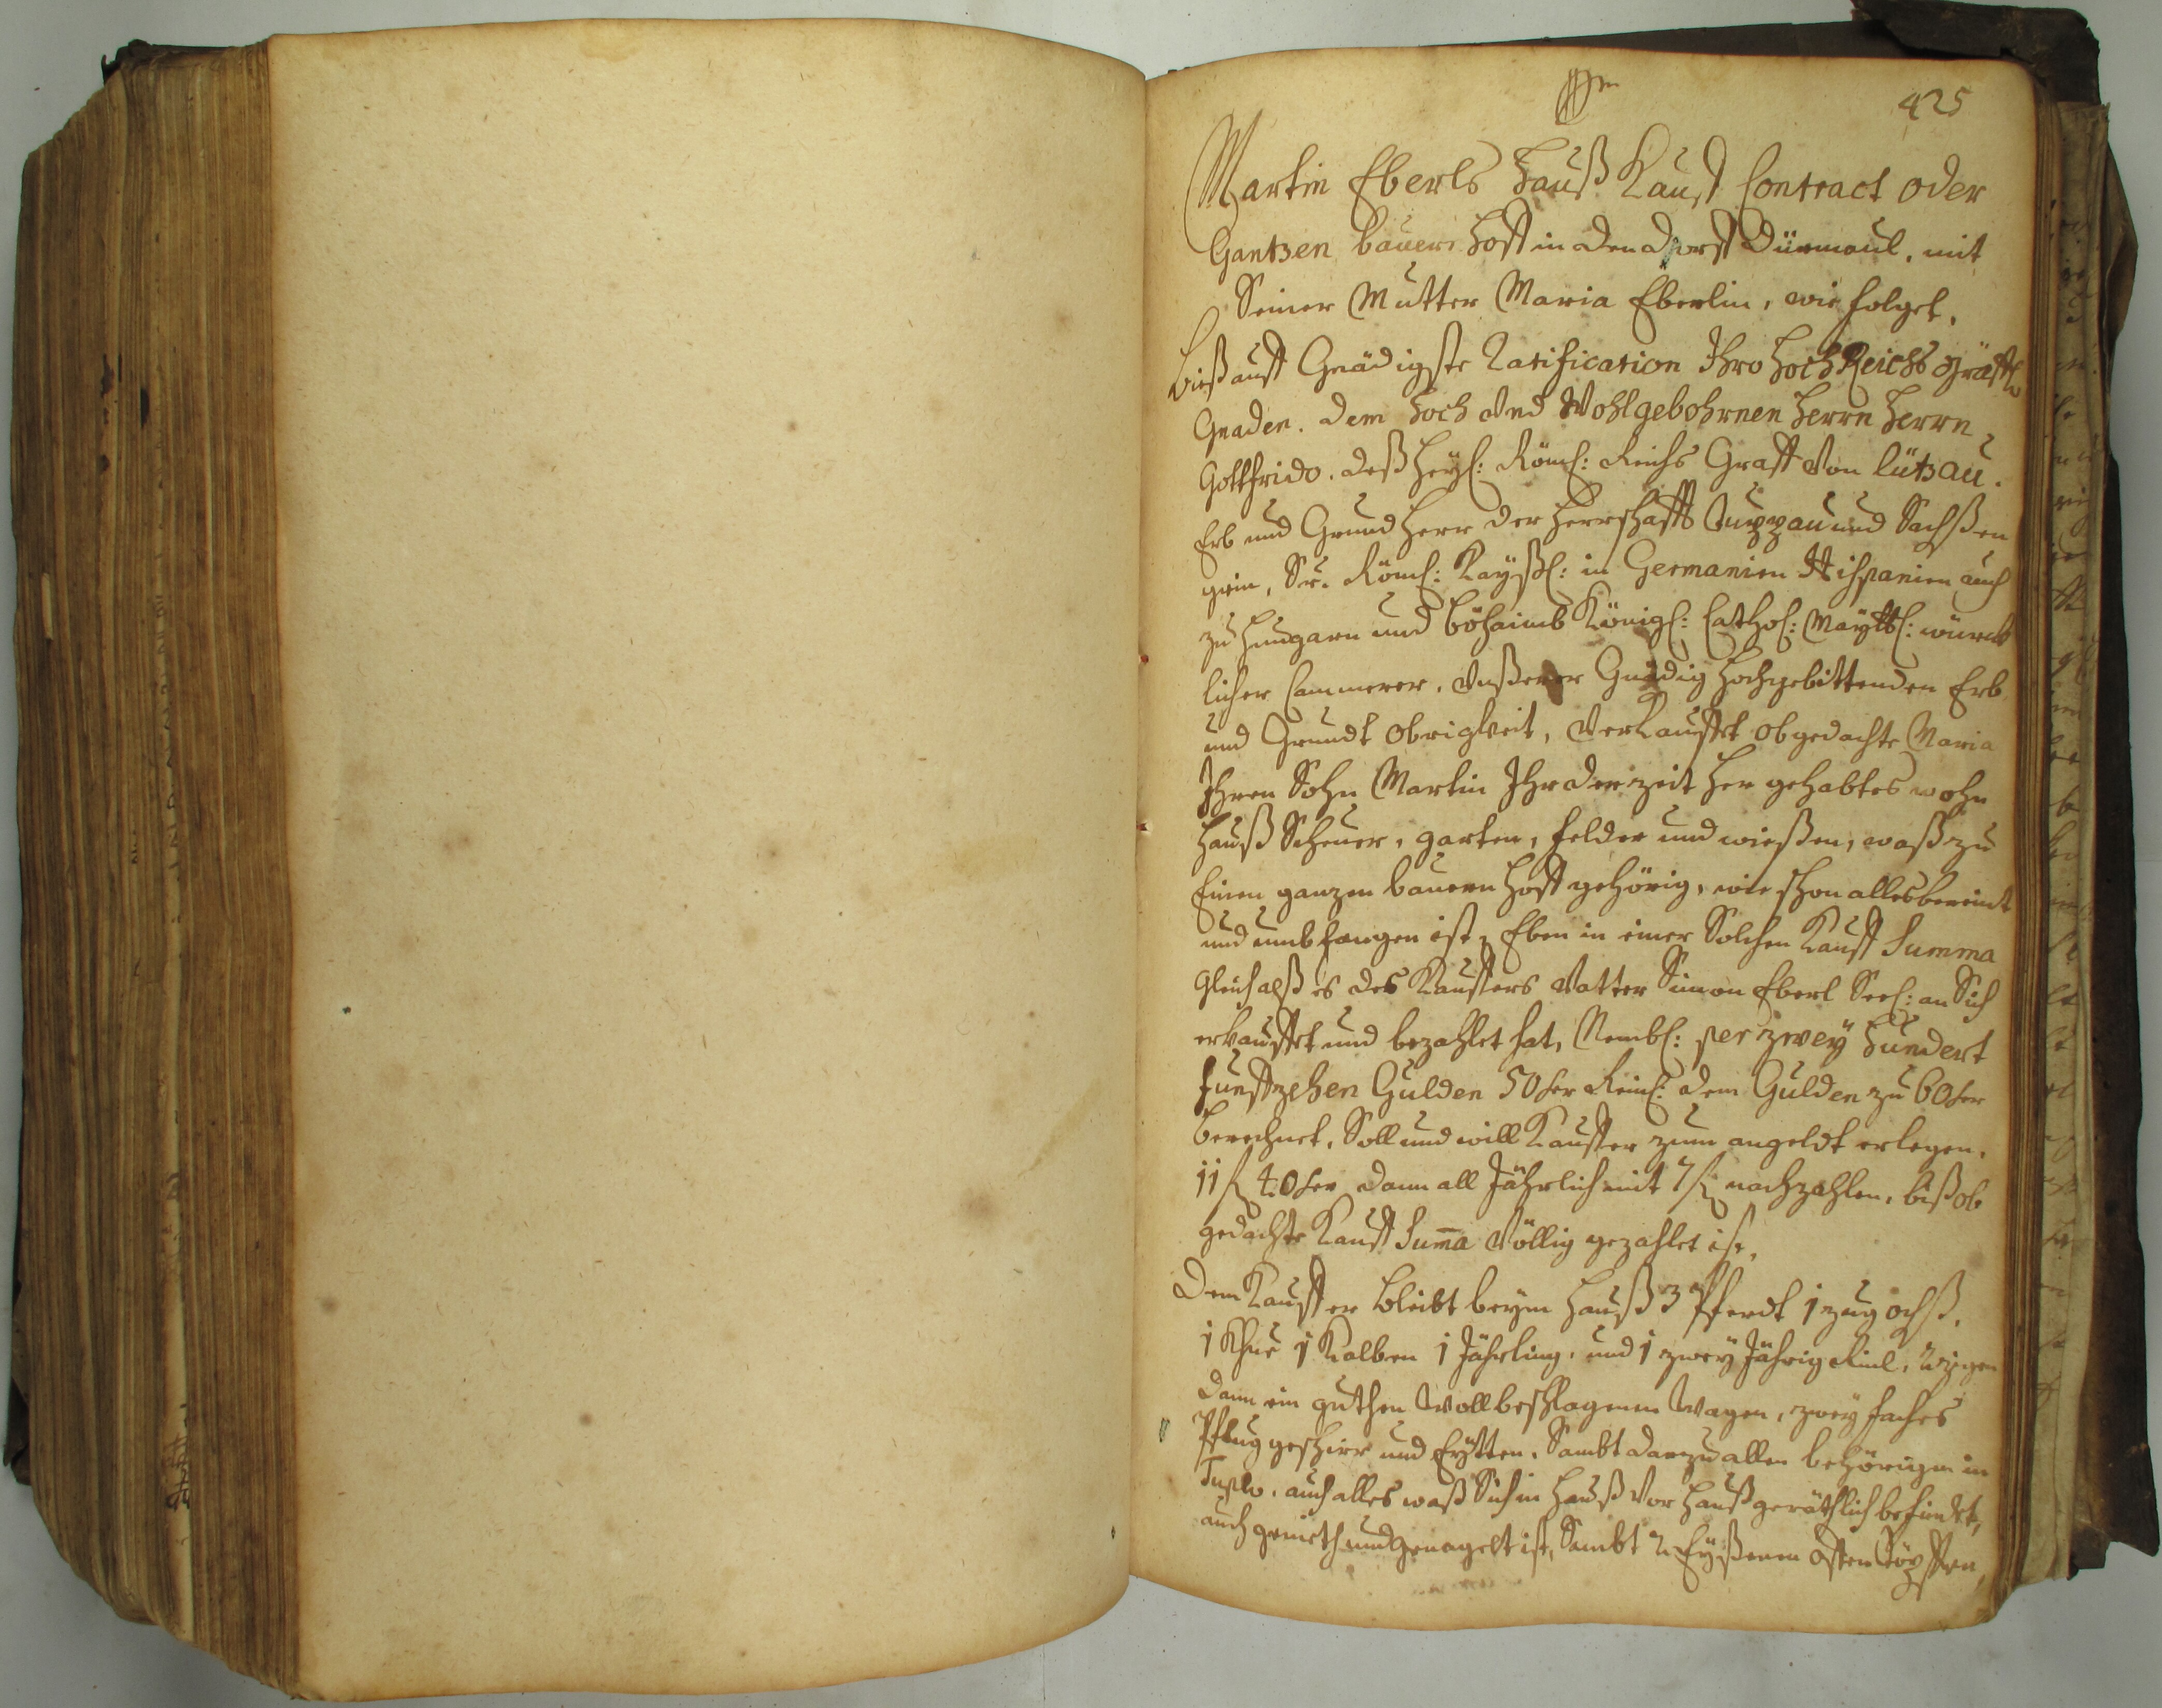 425
Martin Eberls Hauß Kauff Contract oder
Gantzen bauern Hoff in den dorff Dürmaul, mit
Seiner Mutter Maria Eberlin, wie folget,
Bieß auff Gnädigste Ratification Ihro Hoch Reichs Gräffl:
Gnaden. dem Hoch Und Wohlgebohrnen Herrn Herrn
Gottfrido. deß Heyl: Röml: Reichs Graff Von lützau.
Erb und Grund Herr der Herrschafft Duppau und Sachßen
grün, Sr. Röml: Kayßl: in Germanien Hispanien auch
zu Hungarn und böhaimb Königl: Cathol: Maytt: würck
licher Cammerer, Unßerer Gnädig Hochgebittenden Erb
und Grundt obrigkeit, Verkaufft obgedachte Maria
Ihren Sohn Martin Ihr derzeit her gehabtes wohn
Hauß Scheuer, garten, felder und wießen, waß zu
Einen ganzen bauern Hoff gehörig, wie schon alles bereint
und umbfangen ist, Eben in einer Solchen Kauff Summa
gleich alß es des Kauffers Vatter Simon Eberl Seel: an Sich
erkaufft und bezahlet hat, Nembl: per zwey Hundert
funffzehen Gulden 50 kr Reinl: dem Gulden zu 60 kr
berechnet, Soll und will Kauffer zum angeldt erlegen.
11 fl 40 kr dann all Jährlich mit 7 fl nachzahlen, biß ob
gedachte Kauff Suma Völlig gezahlet ist,
Dem Kauffer bleibt beym Hauß 3 Pferdt 1 zug ochß,
1 Khue 1 Kalben 1 Jährling, und 1 zwey Jährig
dann ein guthen Wollbeschlagenen Wagen, zwey faches
Pflug geschirr und Eytten, Sambt darzu allen behörigen in
Duplo, auch alles waß Sich in Hauß Vor Haußgeräthlich befindet,
auch genieth und genagelt ist, Sambt 2 Eyßeren offen Töpffen,